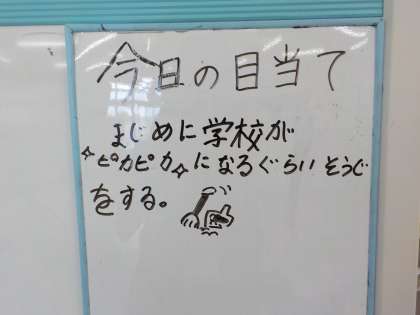 今日の目当て
まじめに学校が
ピカピカになるぐらいそうじ
をする。